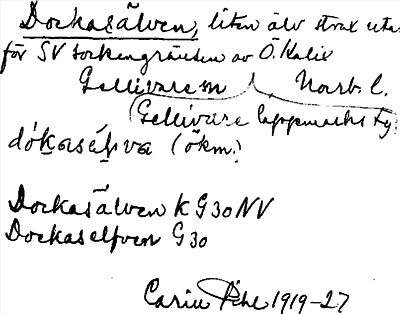 Dockasälven, liten älv strax utan-
för SV sockengränsen av Ö. Kalix
Gellivare sn, Norrb. l.
Gellivare lappmarks
dókaséḷva (ökn.)
Dockasälven K G30 NV
Dockaselfven G 30
Carin Pihl 1919-27